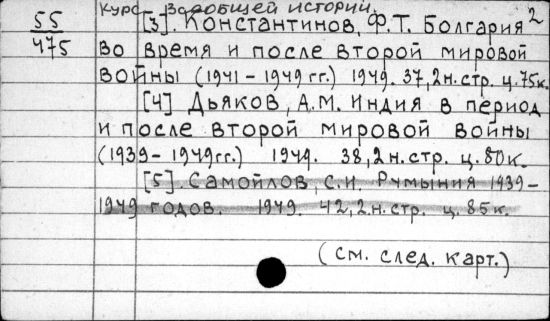 55
475
курс всеобщей истории. 2
[3]. Константинов, Ф.Т. Болгария
во время и после второй мировой
войны (1941-1949 гг.) 1949. 37,2н.стр. ц.75к.
[4] Дьяков, А.М. Индия в период
и после второй мировой войны
(1939-1949гг.) 1949. 38,2н.стр. ц.80к.
[5]. Самойлов, С.И. Румыния 1939-
1949 годов. 1949. 42,2.н.стр. ц.85к.
(см. след. карт.)